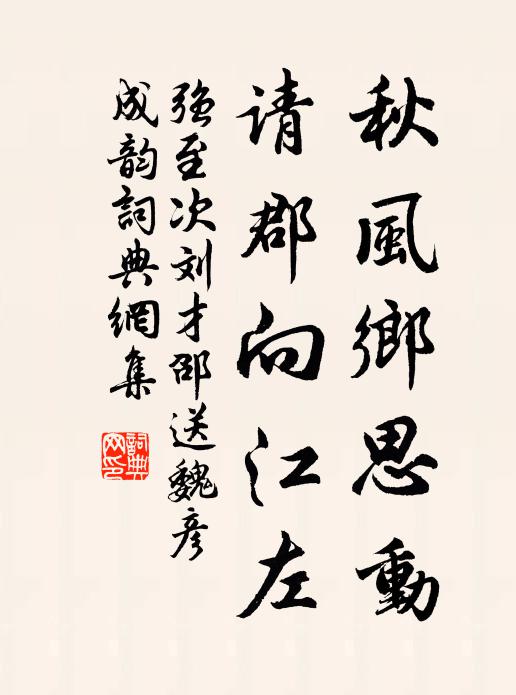 秋風鄉思動
请郡向江左
强至次刘才邵送魏彦
成韵詞典網集
詞典網印